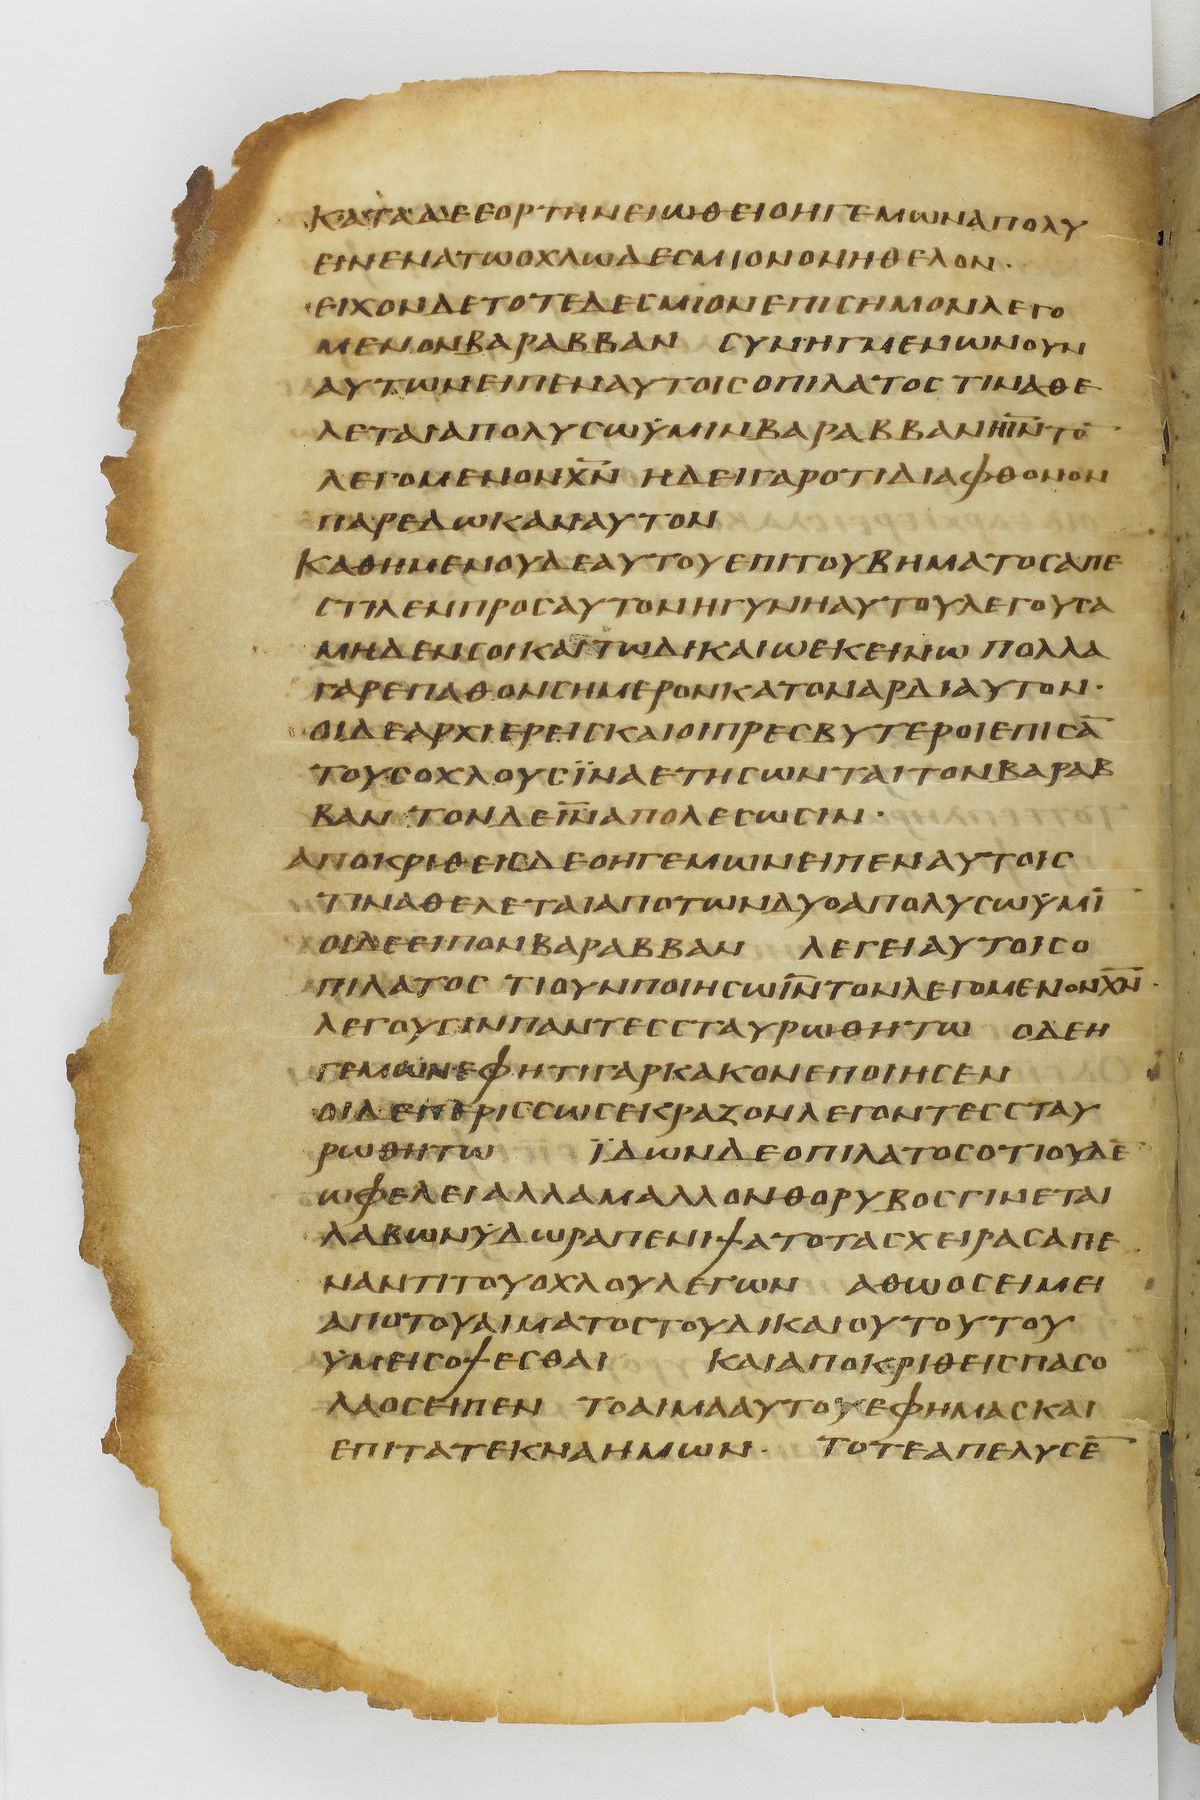 ΚΑΤΑΔΕΕΟΡΤΗΝΕΙΩΘΕΙΟΗΓΕΜΩΝΑΠΟΛΥ
ΕΙΝΕΝΑΤΩΟΧΛΩΔΕΣΜΙΟΝΟΝΗΘΕΛΟΝ·
ΕΙΧΟΝΔΕΤΟΤΕΔΕΣΜΙΟΝΕΠΙΣΗΜΟΝΛΕΓΟ
ΜΕΝΟΝΒΑΡΑΒΒΑΝ ΣΥΝΗΓΜΕΝΩΝΟΥΝ
ΑΥΤΩΝΕΙΠΕΝΑΥΤΟΙΣΟΠΙΛΑΤΟΣΤΙΝΑΘΕ
ΛΕΤΑΙΑΠΟΛΥΣΩΫΜΙΝΒΑΡΑΒΒΑΝΗΙ̅Ν̅ΤΟ̅
ΛΕΓΟΜΕΝΟΝΧ̅Ν̅ ΗΔΕΙΓΑΡΟΤΙΔΙΑΦΘΟΝΟΝ
ΠΑΡΕΔΩΚΑΝΑΥΤΟΝ
ΚΑΘΗΜΕΝΟΥΔΕΑΥΤΟΥΕΠΙΤΟΥΒΗΜΑΤΟΣΑΠΕ
ΣΤΙΛΕΝΠΡΟΣΑΥΤΟΝΗΓΥΝΗΑΥΤΟΥΛΕΓΟΥΣΑ
ΜΗΔΕΝΣΟΙΚΑΙΤΩΔΙΚΑΙΩΕΚΕΙΝΩ ΠΟΛΛΑ
ΓΑΡΕΠΑΘΟΝΣΗΜΕΡΟΝΚΑΤΟΝΑΡΔΙΑΥΤΟΝ·
ΟΙΔΕΑΡΧΙΕΡΕΙΣΚΑΙΟΙΠΡΕΣΒΥΤΕΡΟΙΕΠΙΣΑ̅
ΤΟΥΣΟΧΛΟΥΣΪΝΑΕΤΗΣΩΝΤΑΙΤΟΝΒΑΡΑΒ
ΒΑΝ ΤΟΝΔΕΙ̅Ν̅ΑΠΟΛΕΣΩΣΙΝ·
ΑΠΟΚΡΙΘΕΙΣΔΕΟΗΓΕΜΩΝΕΙΠΕΝΑΥΤΟΙΣ
ΤΙΝΑΘΕΛΕΤΑΙΑΠΟΤΩΝΔΥΟΑΠΟΛΥΣΩΫΜΙ̅
ΟΙΔΕΕΙΠΟΝΒΑΡΑΒΒΑΝ ΛΕΓΕΙΑΥΤΟΙΣΟ
ΠΙΛΑΤΟΣ ΤΙΟΥΝΠΟΙΗΣΩΙ̅Ν̅ΤΟΝΛΕΓΟΜΕΝΟΝΧ̅Ν̅·
ΛΕΓΟΥΣΙΝΠΑΝΤΕΣΣΤΑΥΡΩΘΗΤΩ ΟΔΕΗ
ΓΕΜΩΝΕΦΗΤΙΓΑΡΚΑΚΟΝΕΠΟΙΗΣΕΝ
ΟΙΔΕΠΕΡΙΣΣΩΣΕΚΡΑΖΟΝΛΕΓΟΝΤΕΣΣΤΑΥ
ΡΩΘΗΤΩ ΪΔΩΝΔΕΟΠΙΛΑΤΟΣΟΤΙΟΥΔΕ̅
ΩΦΕΛΕΙΑΛΛΑΜΑΛΛΟΝΘΟΡΥΒΟΣΓΙΝΕΤΑΙ
ΛΑΒΩΝΫΔΩΡΑΠΕΝΙΨΑΤΟΤΑΣΧΕΙΡΑΣΑΠΕ
ΝΑΝΤΙΤΟΥΟΧΛΟΥΛΕΓΩΝ ΑΘΩΟΣΕΙΜΕΙ
ΑΠΟΤΟΥΑΙΜΑΤΟΣΤΟΥΔΙΚΑΙΟΥΤΟΥΤΟΥ
ΫΜΕΙΣΟΨΕΣΘΑΙ ΚΑΙΑΠΟΚΡΙΘΕΙΣΠΑΣΟ
ΛΑΟΣΕΙΠΕΝ ΤΟΑΙΜΑΑΥΤΟΥΕΦΗΜΑΣΚΑΙ
ΕΠΙΤΑΤΕΚΝΑΗΜΩΝ· ΤΟΤΕΑΠΕΛΥΣΕ̅